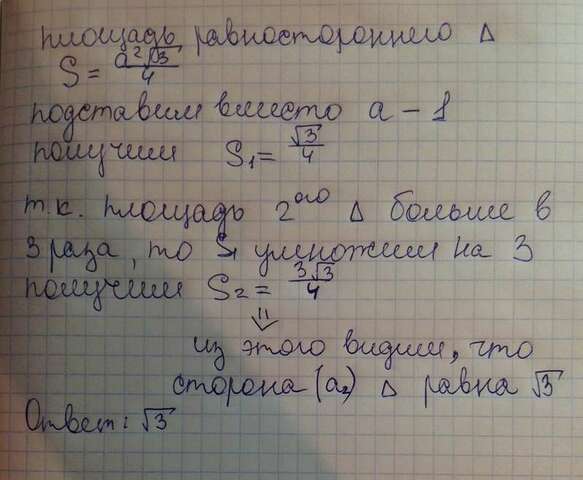 площадь равностороннего Δ
S = a²√3/4
подставим вместо a – 1
получим S₁ = √3/4
т.к. площадь 2ого Δ больше в
3 раза, то S₁ умножим на 3
получим S₂ = 3√3/4
⇓
из этого видим, что
сторона (a₂) Δ равна √3
Ответ: √3